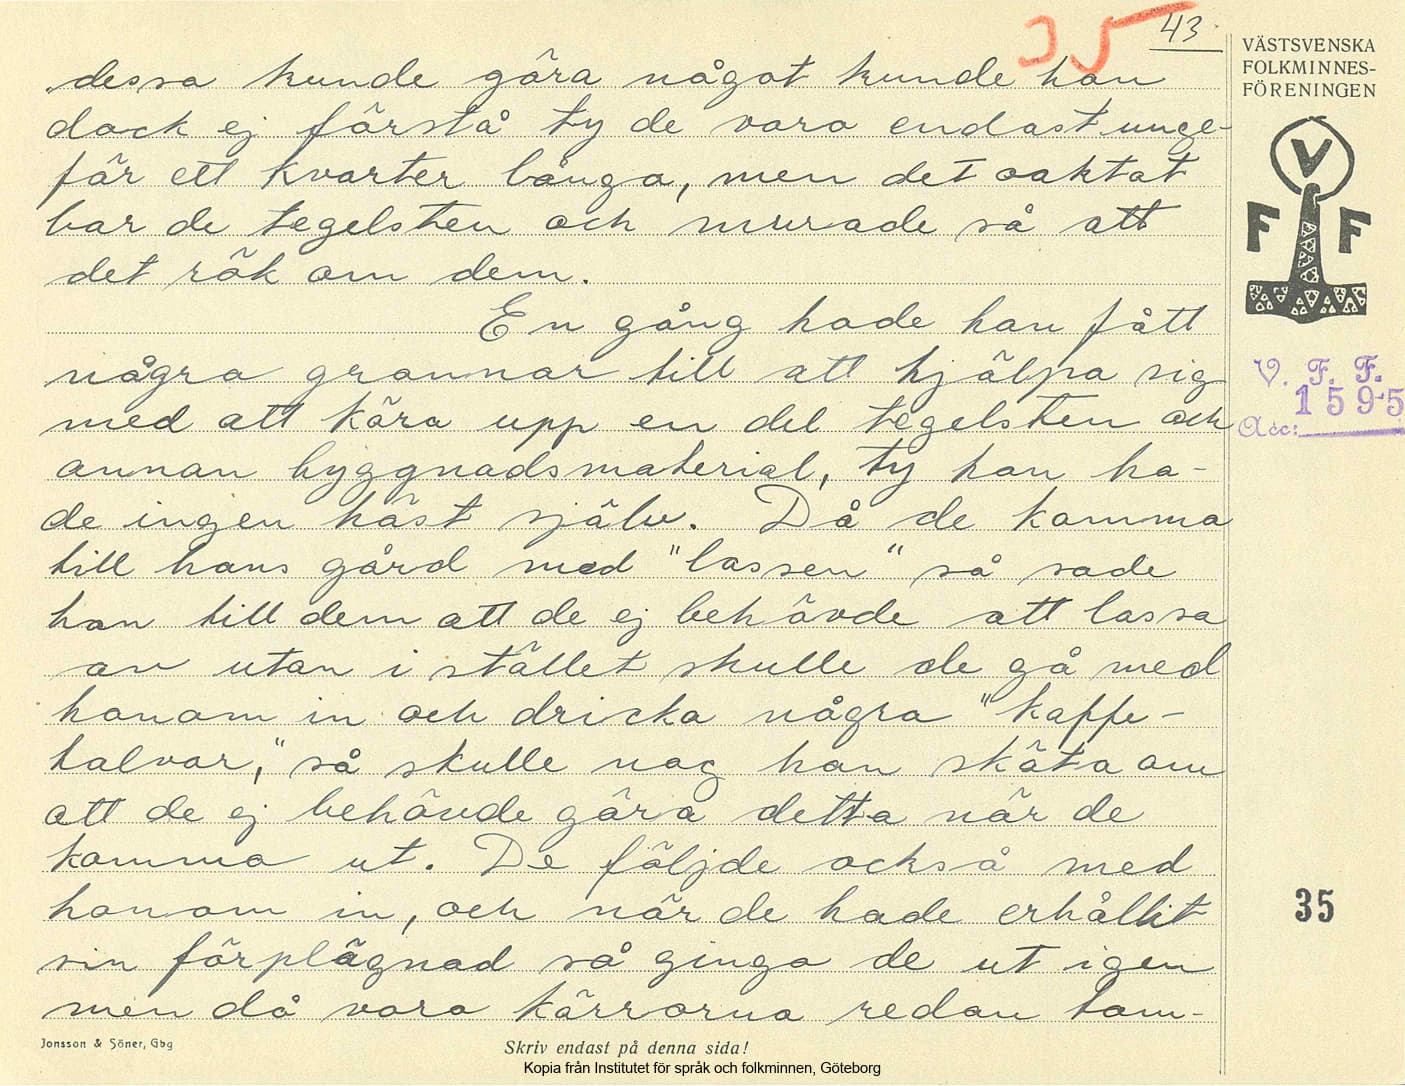 35
43
dessa kunde göra något kunde han
dock ej förstå ty de voro endast unge-
fär ett kvarter långa, men det oaktat
bar de tegelsten och murade så att
det rök om dem.
En gång hade han fått
några grannar till att hjälpa sig
med att köra upp en del tegelsten och
annan byggnadsmaterial, ty han ha-
de ingen häst själv. Då de komma
till hans gård med "lassen" så sade
han till dem att de ej behövde att lassa
av utan i stället skulle de gå med
honom in och dricka några "kaffe-
halvar," så skulle nog han sköta om
att de ej behövde göra detta när de
komma ut. De följde också med
honom in, och när de hade erhållit
sin förplägnad så gingo de ut igen
men då voro kärrorna redan tom-
VÄSTSVENSKA
FOLKMINNES-
FÖRENINGEN
V
F F
V. F. F.
1595
Acc:
35
Jonsson & Söner, Gbg
Skriv endast på denna sida!
Kopia från Institutet för språk och folkminnen, Göteborg